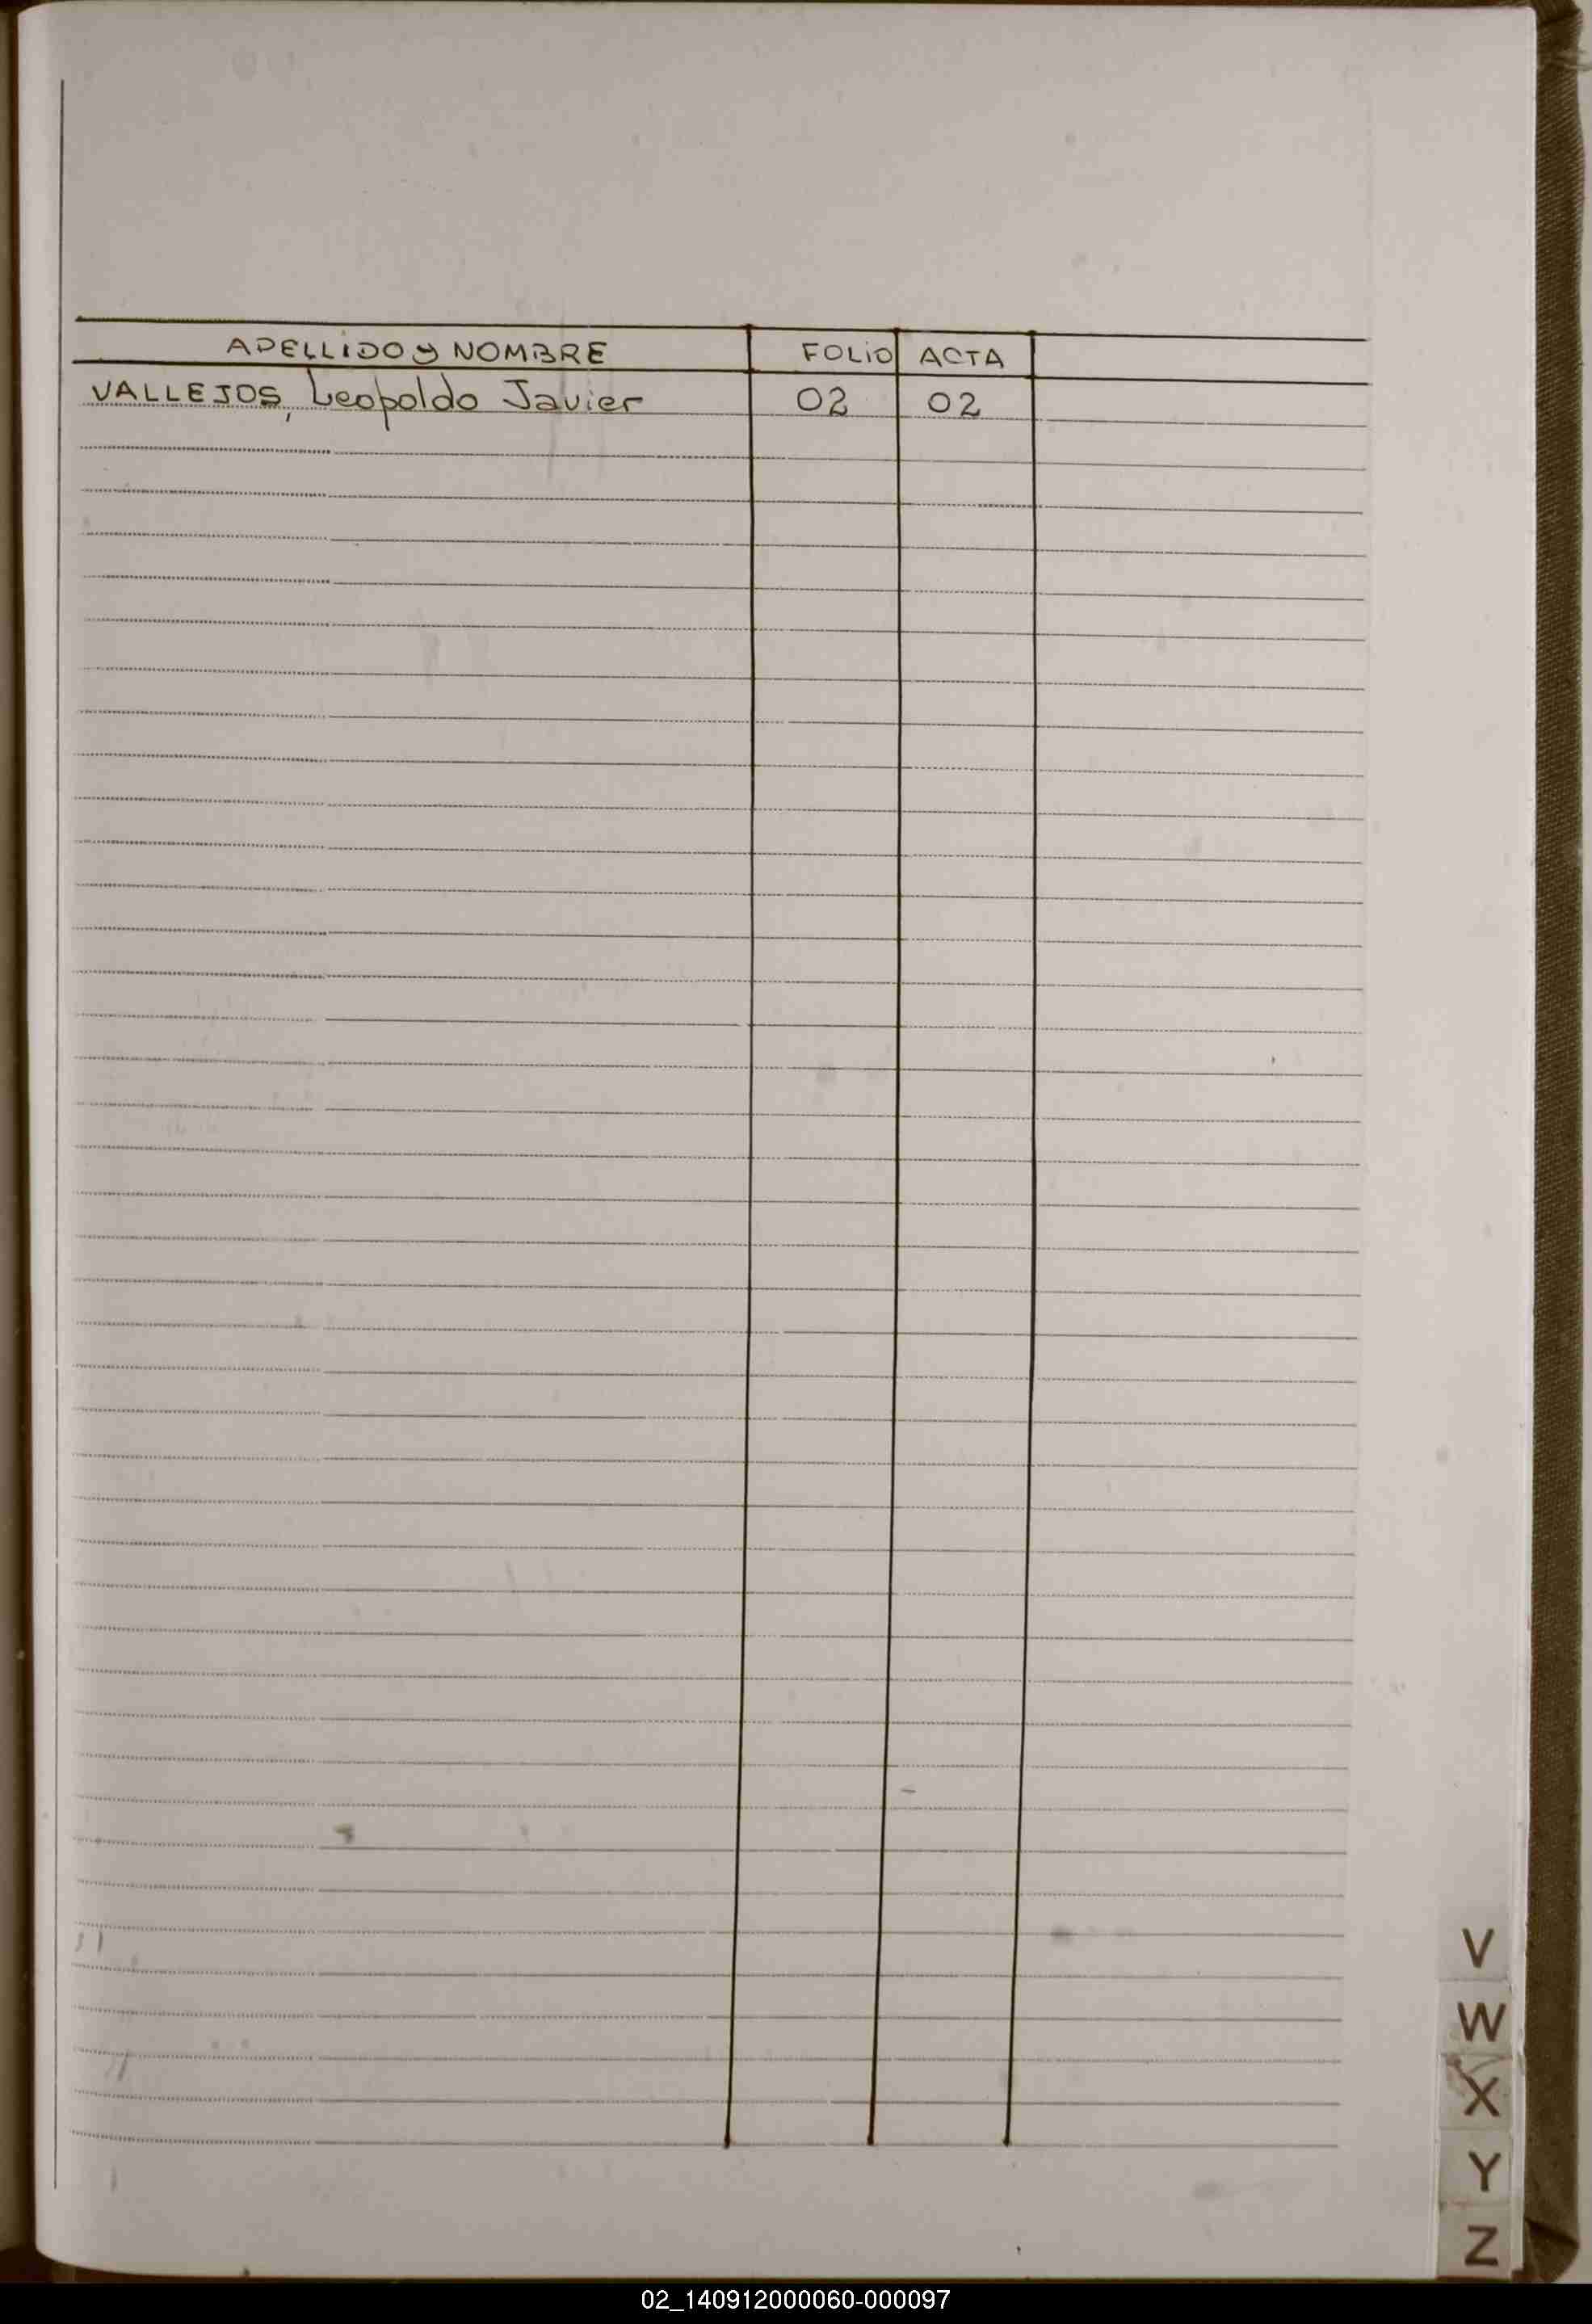 APELLIDO Y NOMBRE FOLIO ACTA
VALLEJOS, Leopoldo Javier 02 02
V
W
X
Y
Z
02_140912000060-000097